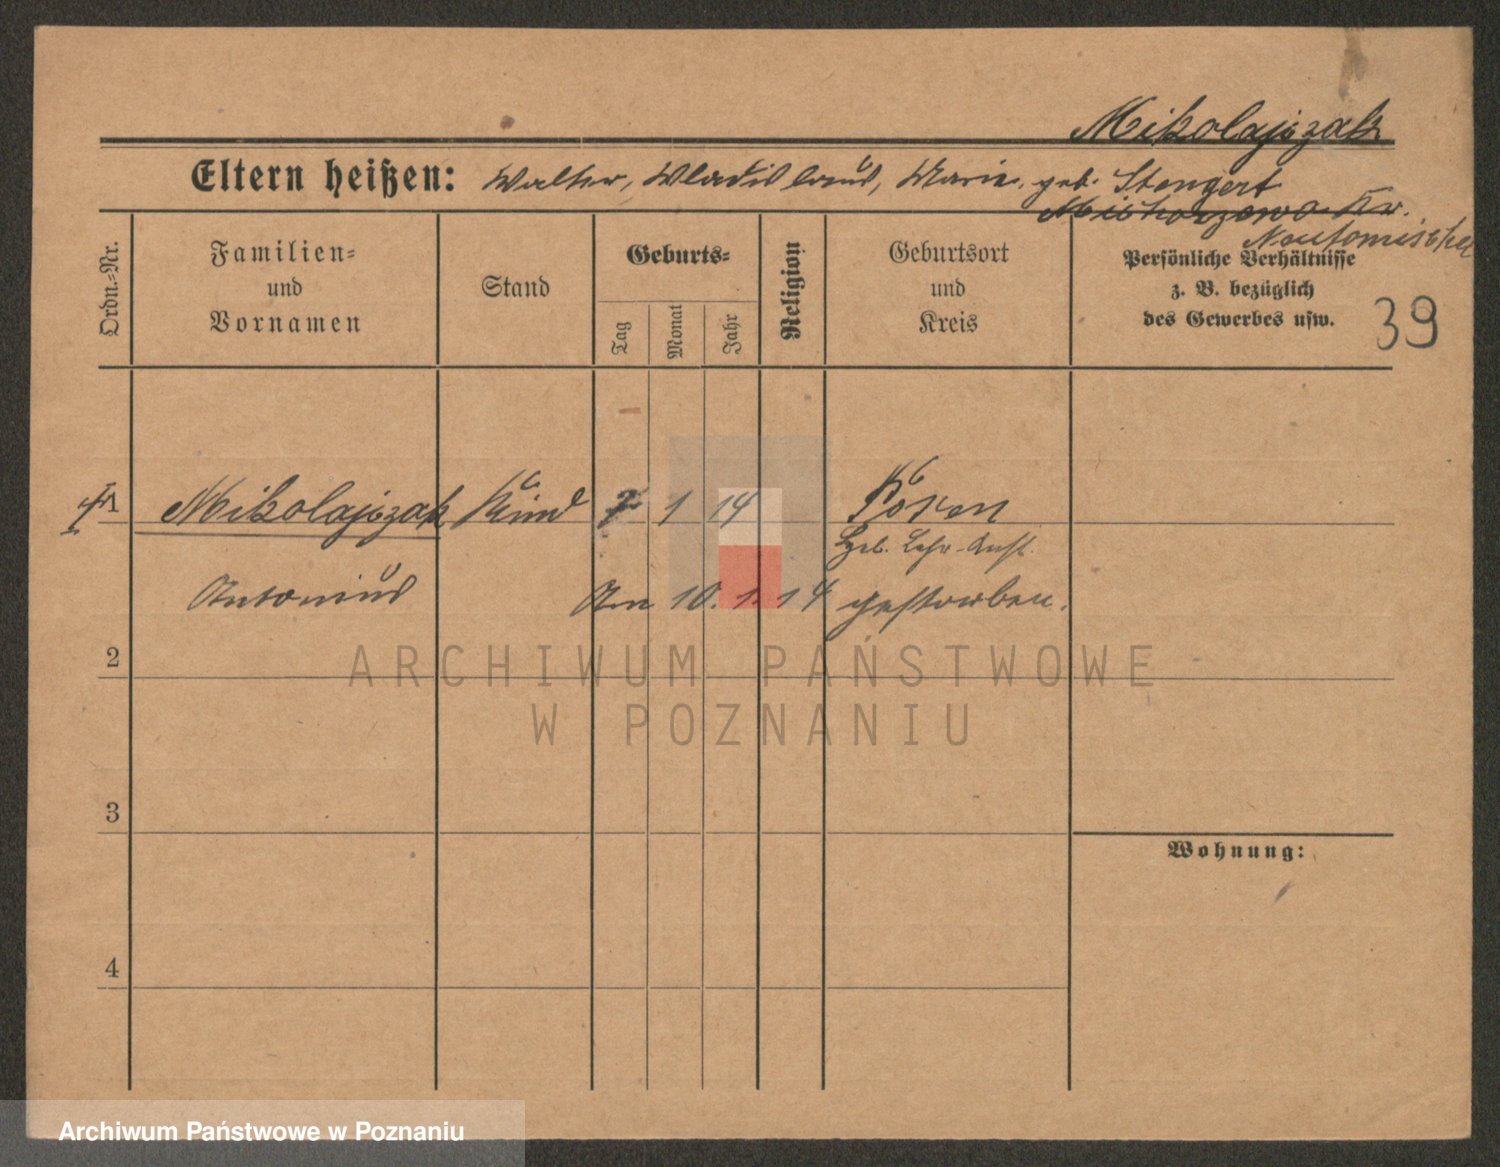 Mikolajczak
Eltern heißen: Walter, Wladislaus, Marie, geb. Stengert
Kr.
Neutomischel
Ordn.-Nr.
Familien-
und
Vornamen
Stand
Geburts-
Tag
Monat
Jahr
Religion
Geburtsort
und
Kreis
Persönliche Verhältnisse
z. B. bezüglich
des Gewerbes usw.
39
1 Mikolajczak Kind 7 1 14 Posen
Lehr-Anst.
Antonius Am 10. 1. 14 gestorben.
ARCHIWUM PAŃSTWOWE
W POZNANIU
2
3
Wohnung:
4
Archiwum Państwowe w Poznaniu